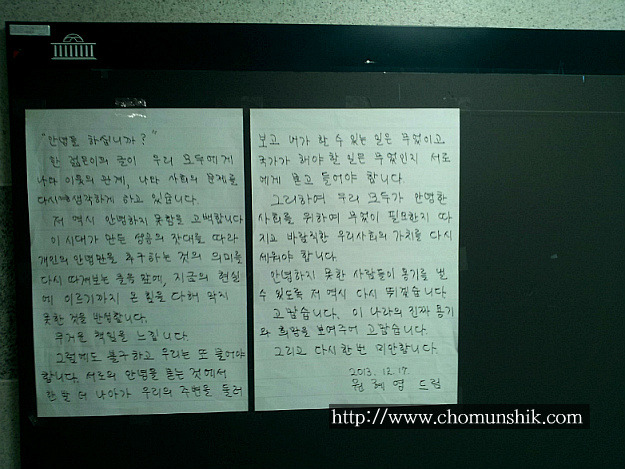 "안녕들 하십니까?"
한 젊은이의 글이 우리 모두에게
나와 이웃의 관계, 나와 사회의 문제를
다시 생각하게 하고 있습니다.
저 역시 안녕하지 못함을 고백합니다
이 시대가 만든 성공의 잣대를 따라
개인의 안녕만을 추구하는 것의 의미를
다시 따져보는 물음 앞에, 지금의 현실
에 이르기까지 온 힘을 다해 막지
못한 것을 반성합니다.
무거운 책임을 느낍니다.
그럼에도 불구하고 우리는 또 물어야
합니다. 서로의 안녕을 묻는 것에서
한 발 더 나아가 우리의 주변을 둘러
보고 내가 할 수 있는 일은 무엇이고
국가가 해야 할 일은 무엇인지 서로
에게 묻고 들어야 합니다.
그리하여 우리 모두가 안녕한
사회를 위하여 무엇이 필요한지 따
지고 바람직한 우리사회의 가치를 다시
세워야 합니다.
안녕하지 못한 사람들이 용기를 낼
수 있도록 저 역시 다시 뛰겠습니다
고맙습니다. 이 나라의 진짜 용기
와 희망을 보여주어 고맙습니다.
그리고 다시 한번 미안합니다.
2013. 12. 17.
원혜영 드림
http://www.chomunshik.com